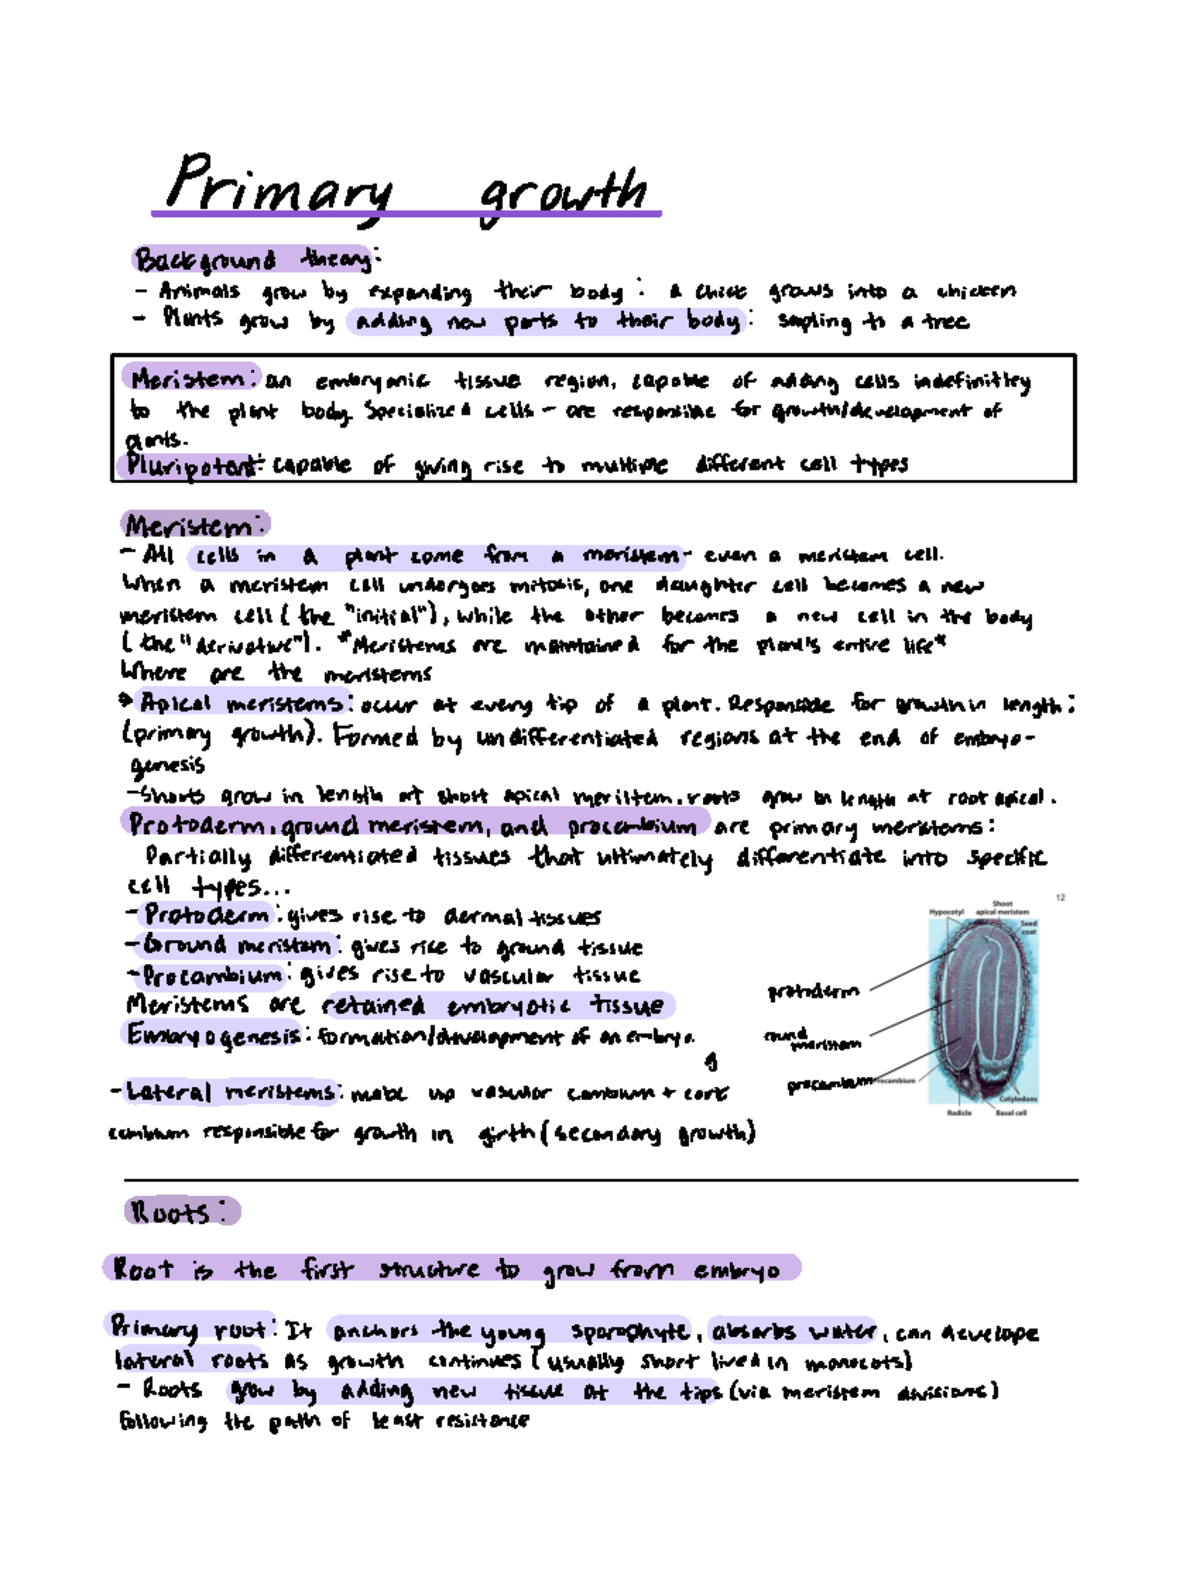 Primary growth
Background theory:
- Animals grow by expanding their body : a chick grows into a chicken
- Plants grow by adding new parts to their body : sapling to a tree
Meristem: an embryonic tissue region, capable of adding cells indefinitley
to the plant body. Specialized cells - are responsible for growth/development of
plants.
Pluripotent: capable of giving rise to multiple different cell types
Meristem:
- All cells in a plant come from a meristem - even a meristem cell.
When a meristem cell undergoes mitosis, one daughter cell becomes a new
meristem cell ( the "initial"), while the other becomes a new cell in the body
( the "derivative"). *Meristems are maintained for the plant's entire life*
Where are the meristems
Apical meristems: occur at every tip of a plant. Responsible for growth in length:
(primary growth). Formed by undifferentiated regions at the end of embryo-
genesis
-Shoots grow in length at shoot apical meristem. roots grow in length at root apical.
Protoderm, ground meristem, and procambium are primary meristems:
Partially differentiated tissues that ultimately differentiate into specific
cell types...
- Protoderm: gives rise to dermal tissues
- Ground meristem: gives rise to ground tissue
- Procambium: gives rise to vascular tissue
Meristems are retained embryotic tissue
Embryogenesis: formation/development of an embryo.
g
- Lateral meristems: make up vascular cambium + cork
cambium responsible for growth in girth (secondary growth)
12
Shoot
Hypocotyl apical meristem
Seed
coat
protoderm
round
meristem
procambium rocambium
Cotyledons
Radicle Basal cell
Roots:
Root is the first structure to grow from embryo
Primary root: It anchors the young sporophyte, absorbs water, can develope
lateral roots as growth continues (usually short lived in monocots)
- Roots grow by adding new tissue at the tips (via meristem divisions)
following the path of least resistance